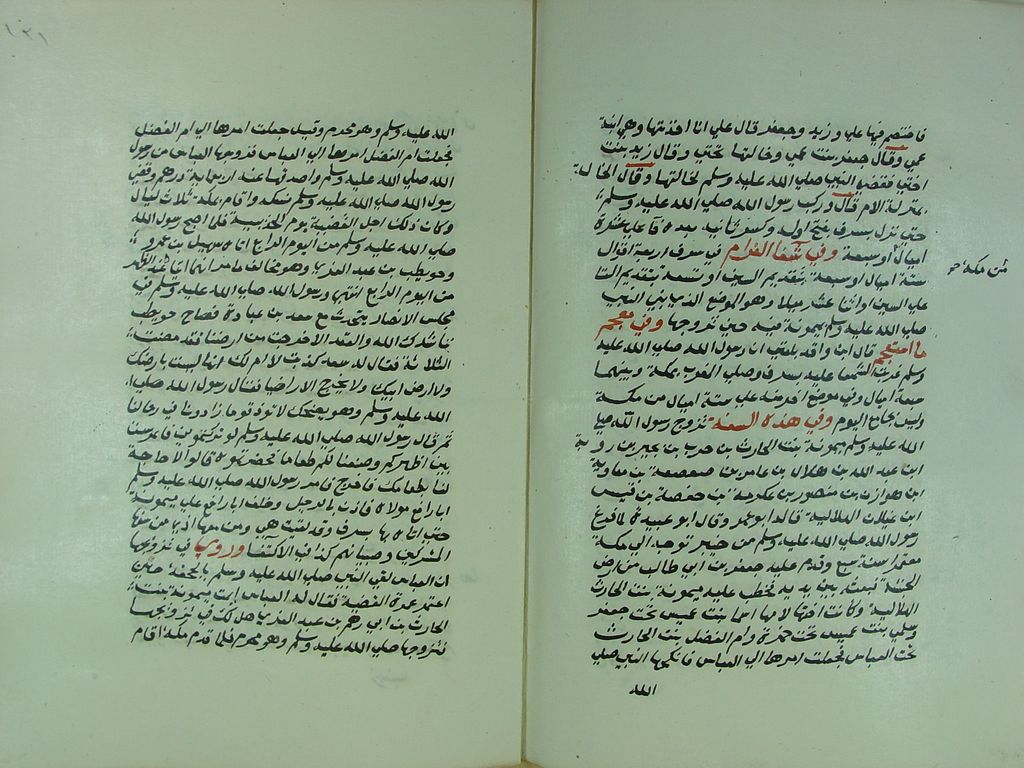 فاختصم فيها علي وزيد وجعفر قال علي انا اخذتها وهي ابنة
عمي وقال جعفر بنت عمي وخالتها تحتي وقال زيد بنت
اخي فقضي النبي صلي الله عليه وسلم لخالتها وقال الخالة
بمنزلة الام قال وركب رسول الله صلي الله عليه وسلم
حتي نزل بسرف بفتح اوله وكسر ثانيه بعده فا علي عشرة
اميال او سبعة وفي شفا الغرام في سرف اربعة اقوال
من مكة
ستة اميال او سبعة بتقديم السين او تسعة بتقديم التا
علي السين واثنا عشر ميلا وهو الموضع الذي بني النبي
صلي الله عليه وسلم بميمونة فيه حين تزوجها وفي معجم
ما استعجم قال ابن واقد بلغني ان رسول الله صلي الله عليه
وسلم غربت الشمس عليه بسرف وصلي المغرب بمكة وبينهما
سبعة اميال وفي موضع اخر منه علي ستة اميال من مكة
وليس بجامع اليوم وفي هذه السنة تزوج رسول الله صلي
الله عليه وسلم ميمونة بنت الحارث بن حرب بن بجير بن روبة
ابن عبد الله بن هلال بن عامر بن صعصعة بن معاوية
ابن هوازن بن منصور بن عكرمة بن حفصة بن قيس
ابن غيلان الهلالية قاله ابو عمر وقال ابو عبيدة لما فرغ
رسول الله صلي الله عليه وسلم من خيبر توجه الي مكة
معتمرا سنة سبع وقدم عليه جعفر بن ابي طالب من ارض
الحبشة فبعثه بين يديه فخطب عليه ميمونة بنت الحارث
الهلالية وكانت اختها لامها اسما بنت عميس تحت جعفر
وسلمي بنت عميس تحت حمزة وام الفضل بنت الحارث
تحت العباس فجعلت امرها الي العباس فانكحها النبي صلي
الله
١٢١
الله عليه وسلم وهو محرم وقيل جعلت امرها الي ام الفضل
فجعلت ام الفضل امرها الي العباس فزوجها العباس من رسول
الله صلي الله عليه وسلم واصدقها عنه اربعماية درهم وقضي
رسول الله صلي الله عليه وسلم نسكه واقام بمكة ثلاث ليال
وكان ذلك اجل القضية يوم الحديبية فلما اصبح رسول الله
صلي الله عليه وسلم من اليوم الرابع اتاه سهيل بن عمرو
وحويطب بن عبد العزي
من اليوم الرابع انتهي ورسول الله صلي الله عليه وسلم في
مجلس الانصار يتحدث مع سعد بن عبادة فصاح حويطب
ناشدك الله والعقد الا خرجت من ارضنا فقد مضت
الثلاثة فقال له سعد كذبت لا ام لك انها ليست بارضك
ولا ارض ابيك ولا يخرج الا راضيا فقال رسول الله صلي
الله عليه وسلم وهو يضحك لا توذ قوما زارونا في رحالنا
ثم قال رسول الله صلي الله عليه وسلم لو تركتموني فاعرست
بين اظهركم وصنعنا لكم طعاما فحضرتموه قالوا لا حاجة
لنا بطعامك فاخرج فامر رسول الله صلي الله عليه وسلم
ابا رافع مولاه فاذن بالرحيل وخلف ابا رافع علي ميمونة
حتي اتاه بها بسرف وقد لقيت هي ومن معها اذي من سفها
المشركين وصبيانهم كذا في الاكتفا وروي في تزويجها
ان العباس لقي النبي صلي الله عليه وسلم بالجحفة حين
اعتمر عمرة القضية فقال له العباس ايمت ميمونة بنت
الحارث بن ابي رهم بن عبد العزي هل لك في تزويجها
فتزوجها صلي الله عليه وسلم وهو محرم فلما قدم مكة اقام